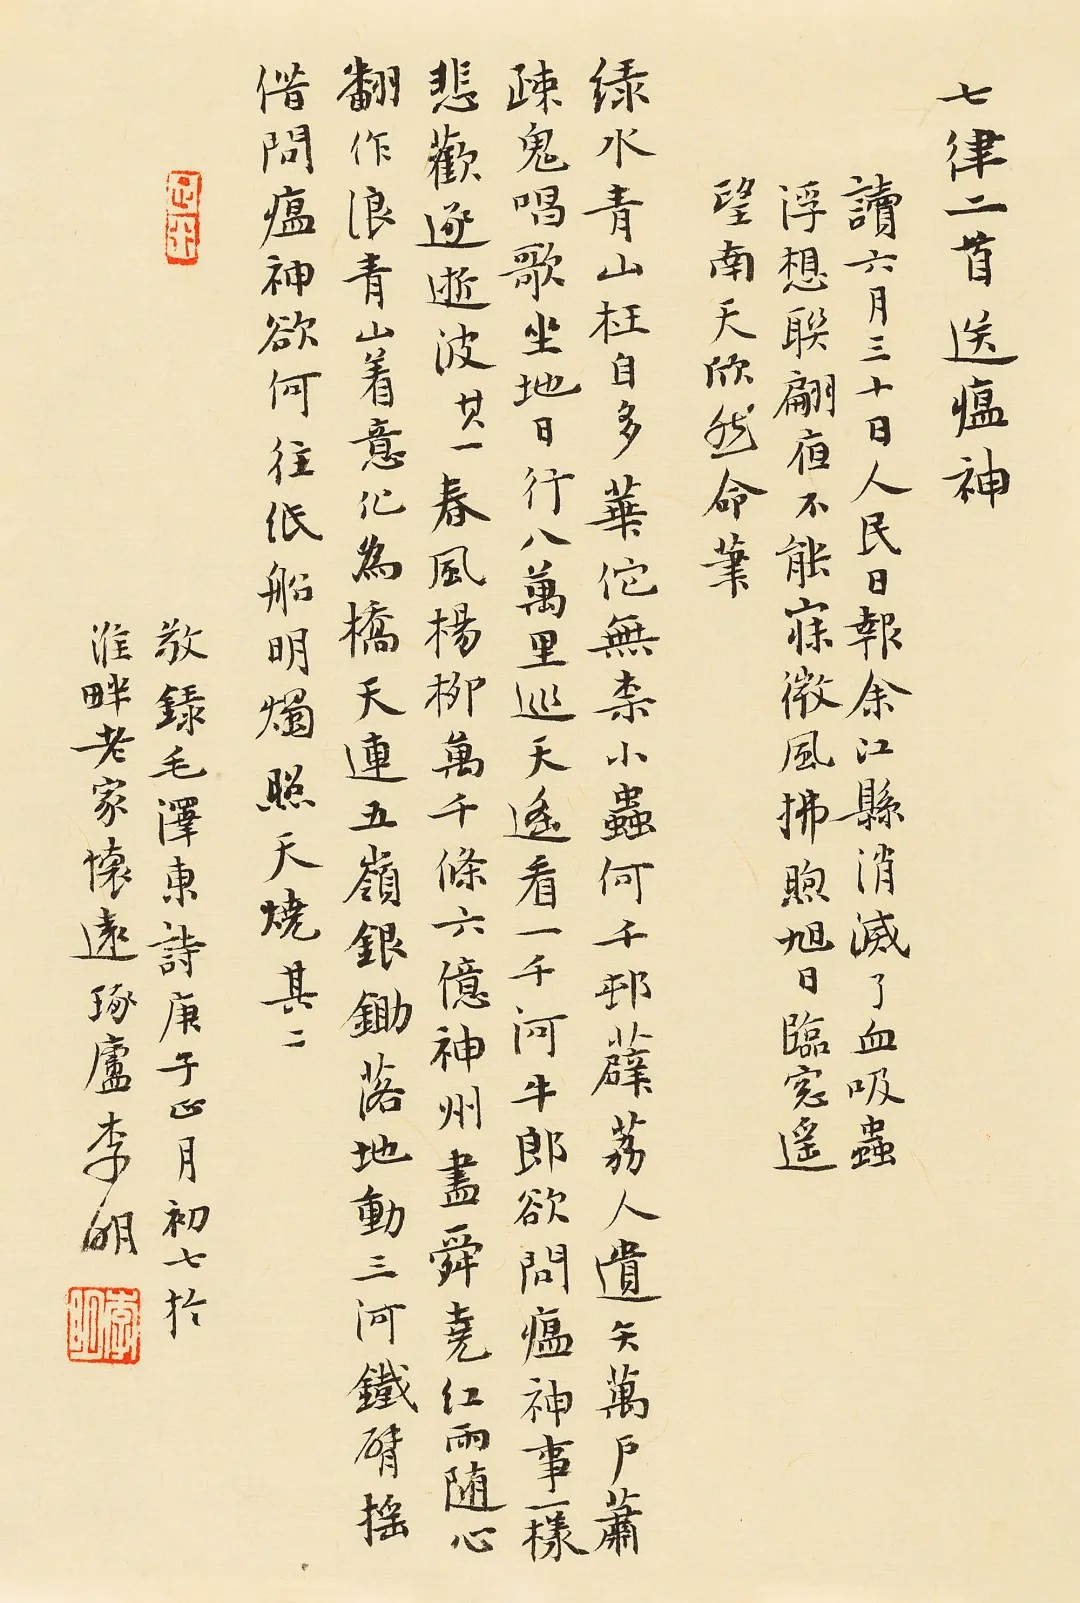 七律二首送瘟神
讀六月三十日人民日報余江縣消滅了血吸蟲
浮想聯翩夜不能寐微風拂煦旭日臨窓遥
望南天欣然命筆
绿水青山枉自多華佗無柰小蟲何千邨薜荔人遺矢萬户蕭
疎鬼唱歌坐地日行八萬里巡天遥看一千河牛郎欲問瘟神事一樣
悲歡逐逝波其一春風楊柳萬千條六億神州盡舜堯红雨随心
翻作浪青山着意化為橋天連五嶺銀鋤落地動三河鐵臂摇
借問瘟神欲何往纸船明燭照天燒其二
敬録毛澤東詩庚子正月初七於
淮畔老家懷遠琢廬李明